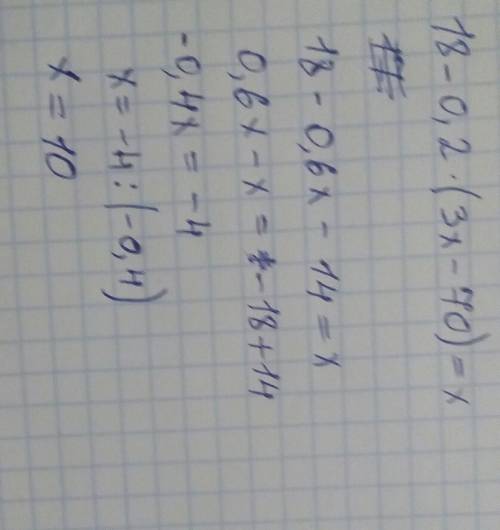 18 - 0,2 · (3x - 70) = x
18 - 0,6x - 14 = x
0,6x - x = - 18 + 14
-0,4x = -4
x = -4 : (-0,4)
x = 10